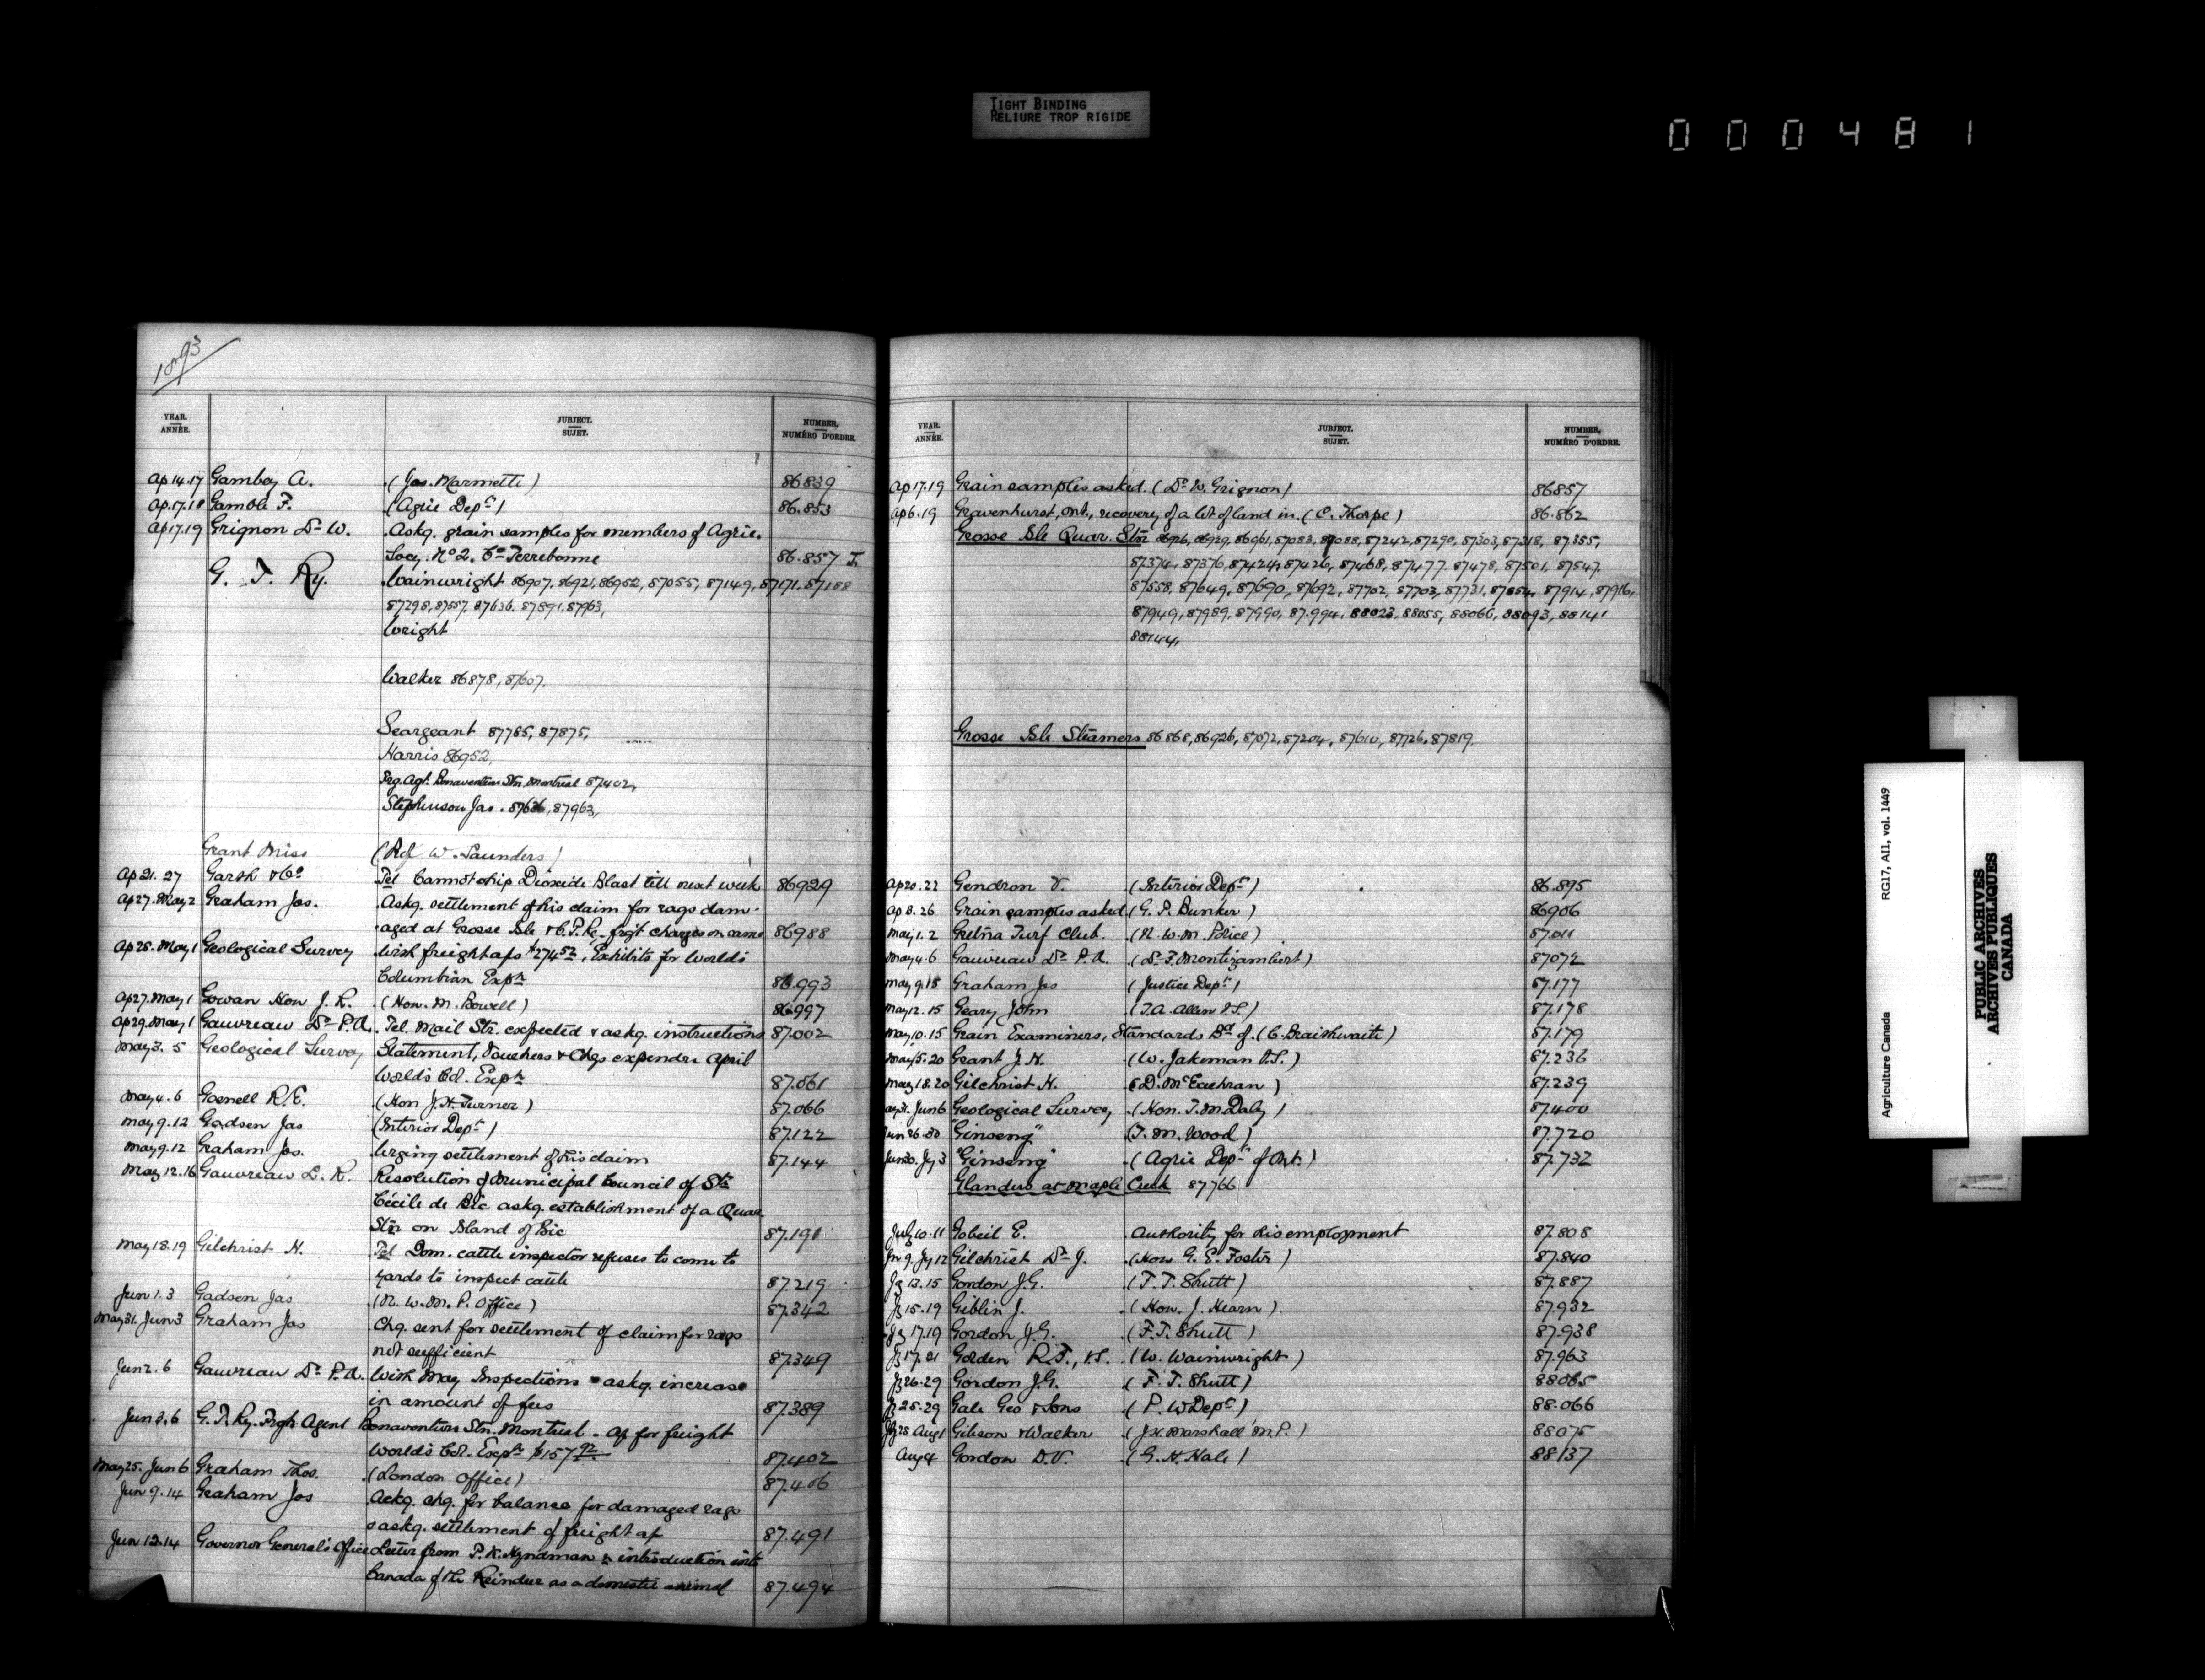 TIGHT BINDING
RELIURE TROP RIGIDE
000481
1893
YEAR. ANNÉE. JUBJECT. SUJET. NUMBER, NUMÉRO D'ORDRE.
Ap 14.17 Gambey A. (Jos. Marmette) 86839
Ap.17.18 Gamble F. (Agric Dept) 86.853
Ap17.19 Grignon Dr W. Askg. grain samples for members of Agric.
Socy. No 2. Co Terrebonne 86.857
G. T. Ry. Wainwright 86907, 86921, 86952, 87055, 87149, 87171, 87188
87298, 87557, 87636, 87891, 87963,
Wright
Walker 86878, 87607,
Seargeant 87785, 87875,
Harris 86952,
Frg. Agt. Bonaventure Stn. Montreal 87402,
Stephenson Jas. 87636, 87963,
Grant Miss (Prof W. Saunders)
Ap 21. 27 Garth & Co Tel Cannot ship Dioxide Blast till next week 86929
Ap27. May 2 Graham Jos. Askg. settlement of his claim for rags dam-
aged at Grosse Isle & C.P.Ry. frgt charges on same 86988
Ap 28. May 1 Geological Survey With freight a/cs $274.52, Exhibits for World's
Columbian Expn 86.993
Ap27. May 1 Gowan Hon J. R. (Hon. M. Bowell) 86997
Ap29. May 1 Gauvreau Dr P.A. Tel. Mail Str. expected & askg. instructions 87.002
May 3. 5 Geological Survey Statement, Vouchers & Chqs expendre April
World's Col. Expn 87.061
May 4. 6 Gosnell R.E. (Hon J.H. Turner) 87.066
May 9.12 Gadsen Jas (Interior Dept) 87.122
May 9.12 Graham Jos. Urging settlement of his claim 87.144
May 12.16 Gauvreau L. R. Resolution of Municipal Council of Ste
Cécile de Bic askg. establishment of a Quar.
Stn on Island of Bic 87.191
May 18.19 Gilchrist H. Tel Dom. cattle inspector refuses to come to
yards to inspect cattle 87.219
Jun 1.3 Gadsen Jas (N. W. M. P. Office) 87.342
May 31. Jun 3 Graham Jos Chq. sent for settlement of claim for rags
not sufficient 87.349
Jun 2. 6 Gauvreau Dr P.A. With May Inspections & askg. increase
in amount of fees 87.389
Jun 3.6 G. T. Ry. Frgh. Agent Bonaventure Stn. Montreal. a/c for freight
World's Col. Expn $157.92 87.402
May 25. Jun 6 Graham Thos. (London Office) 87.406
Jun 9. 14 Graham Jos Ackg. chq. for balance for damaged rags
& askg. settlement of freight a/c 87.491
Jun 12.14 Governor General's Office Letter from P. K. Hyndman re introduction into
Canada of the Reindeer as a domestic animal 87.494
YEAR. ANNÉE. JUBJECT. SUJET. NUMBER, NUMÉRO D'ORDRE.
Ap 17.19 Grain samples asked. (Dr W. Grignon) 86857
Ap 6.19 Gravenhurst, Ont., recovery of a lot of land in. (C. Thorpe) 86.862
Grosse Isle Quar. Stn 86926, 86929, 86961, 87083, 87088, 87242, 87290, 87303, 87318, 87355,
87374, 87376, 87424, 87426, 87468, 87477, 87478, 87501, 87547,
87558, 87649, 87690, 87692, 87702, 87703, 87731, 87854, 87914, 87916,
87949, 87989, 87990, 87.994, 88023, 88055, 88066, 88093, 88141
88144,
Grosse Isle Steamers 86868, 86926, 87072, 87204, 87610, 87726, 87819.
Ap 20. 22 Gendron V. (Interior Dept) 86.895
Ap 8. 26 Grain samples asked (G. P. Bunker) 86906
May 1. 2 Gretna Turf Club. (N. W. M. Police) 87.011
May 4. 6 Gauvreau Dr P. A. (Dr F. Montizambert) 87072
May 9.18 Graham Jos (Justice Dept) 87.177
May 12. 15 Geary John (J. A. Allen V.S.) 87.178
May 10. 15 Grain Examiners, Standards Bd of. (C. Braithwaite) 87.179
May 15. 20 Grant J. H. (W. Jakeman V.S.) 87.236
May 18.20 Gilchrist H. (D. McEachran) 87.239
May 31. Jun 6 Geological Survey (Hon. T. M. Daly) 87.400
Jun 26.30 "Ginseng" (T. M. Wood) 87.720
Jun 30. Jy 3 "Ginseng" (Agric Dept of Ont.) 87.732
Glanders at Maple Creek 87766
July 10.11 Gobeil E. Authority for his employment 87.808
Jn 9. Jy 12 Gilchrist Dr J. (Hon G. E. Foster) 87.840
Jy 13. 15 Gordon J.G. (F. T. Shutt) 87.887
Jy 15.19 Giblin J. (Hon. J. Hearn) 87.932
Jy 17.19 Gordon J.G. (F.T. Shutt) 87.938
Jy 17. 21 Golden R.T., V.S. (W. Wainwright) 87.963
Jy 26.29 Gordon J.G. (F. T. Shutt) 88065
Jy 28.29 Gale Geo & Sons (P. W Dept) 88.066
Jy 28 Aug 1 Gibson & Walker (J.H. Marshall M.P.) 88075
Aug 4 Gordon D.V. (G. H. Hale) 88137
Agriculture Canada RG17, AII, vol. 1449
PUBLIC ARCHIVES
ARCHIVES PUBLIQUES
CANADA